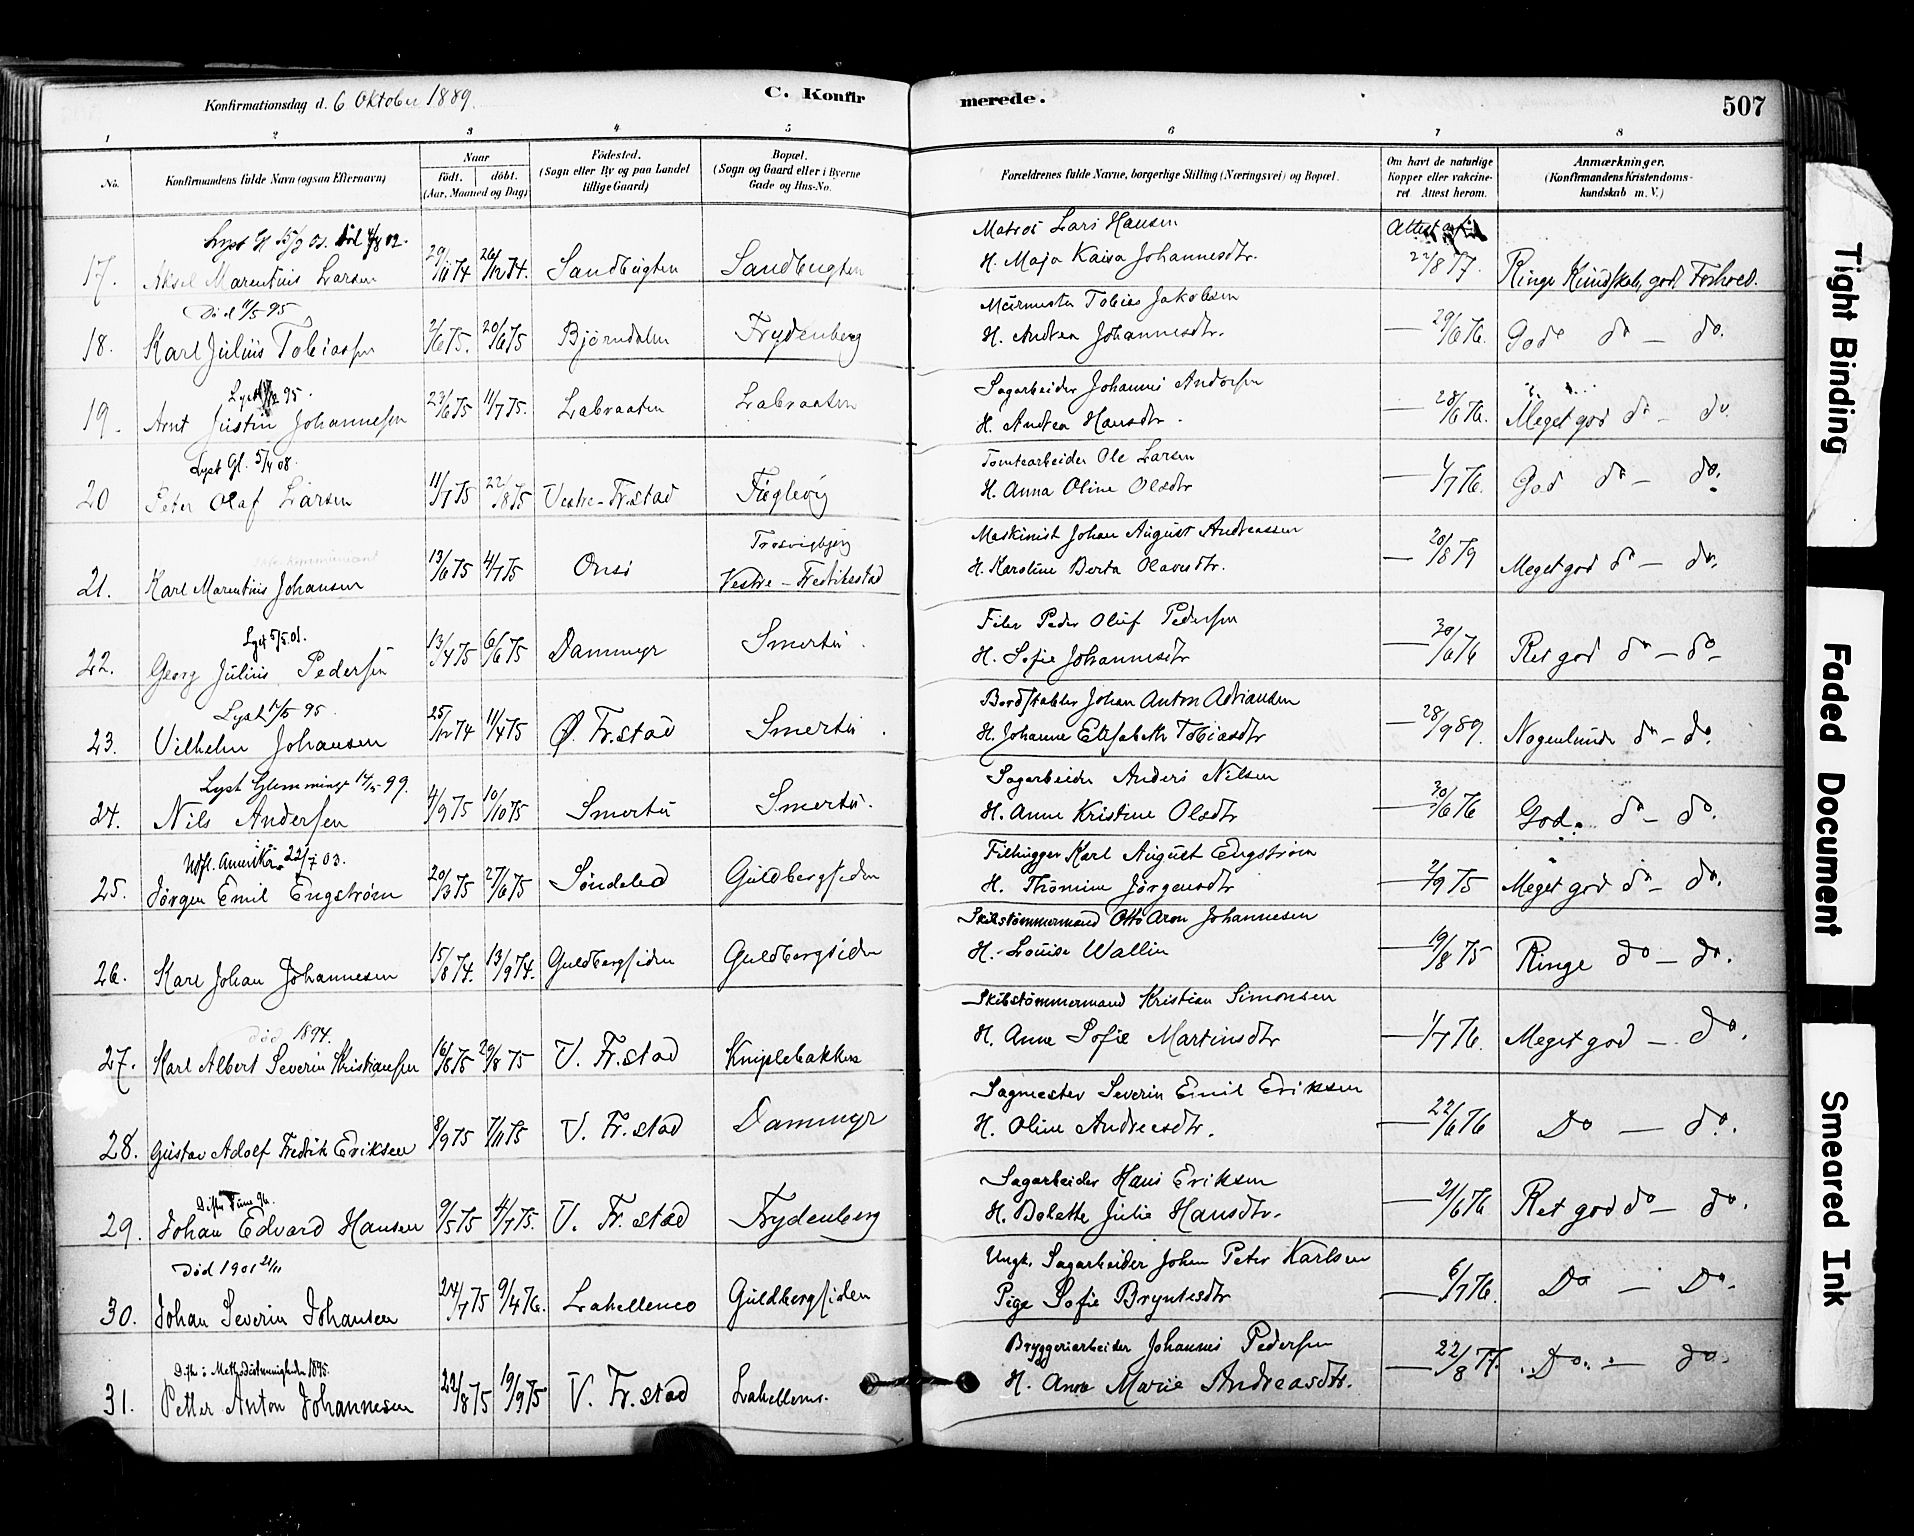 Konfirmationsdag d. 6 Oktober 1889.
C. Konfirmerede.
507
1 2 3 4 5 6 7 8
No.
Konfirmandens fulde Navn (ogsaa Efternavn)
Naar
født. døbt.
(Aar, Maaned og Dag)
Fødested.
(Sogn eller By og paa Landet
tillige Gaard)
Bopæl.
(Sogn og Gaard eller i Byerne
Gade og Hus-No.
Forældrenes fulde Navne, borgerlige Stilling (Næringsvei) og Bopæl.
Om havt de naturlige
Kopper eller vakcine-
ret Attest herom.
Anmærkninger.
(Konfirmandens Kristendoms-
kundskab m. V.)
Matros Lars Hansen
17. Aksel Marentius Larsen 29/11 74 26/12 74. Sandbugten Sandbugten H. Maja Kaisa Johannesdtr. 22/8 77. Ringe Kundskab, god Forhold.
Død 11/5 95
Murmester Tobias Jakobsen
18. Karl Julius Tobiassen 2/6 75. 20/6 75 Bjørndalen Frydenberg H. Andrea Johannesdtr. — 29/6 76. Gode do — do.
Sagarbeider Johannes Andersen
19. Arnt Justin Johannessen 23/6 75 11/7 75. Labraaten Labraaten H. Andrea Hansdtr. — 28/6 76. Meget god do — do
Lyst Gl. 5/4 08.
Tomtearbeider Ole Larsen
20 Peter Olaf Larsen 11/7 75 22/8 75 Vestre-Fr.stad H. Anna Oline Olsdtr — 1/7 76. God do — do.
Trosvigbjerg
Maskinist Johan August Andreassen
21. Karl Marentius Johansen 13/6 75 4/7 75 Onsø Vestre-Fredriksstad H. Karoline Berta Olavesdtr. — 20/8 79 Meget god do — do.
Lyst 5/5 01.
Filer Peder Oluf Pedersen
22. Georg Julius Pedersen 13/4 75 6/6 75 Dammyr Smertu. H. Sofie Johannesdtr — 30/6 76 Ret god do — do—
Lyst 17/5 95.
Bordstabler Johan Anton Adriansen
23. Vilhelm Johansen 25/12 74 11/4 75 Ø. Fr.stad Smertu. H. Johanne Elisabeth Tobiasdtr — 28/9 89. Nogenlunde do — do.
Lyst Glemminge 99.
Sagarbeider Anders Nilsen
24. Nils Andersen 4/9 75 10/10 75 Smertu Smertu. H. Anne Kristine Olsdtr — 30/6 76 God. do — do.
Udfl. Amerika 22/7 03.
Filhugger Karl August Engstrøm
25. Jørgen Emil Engstrøm 20/3 75 27/6 75 Søndeled Guldbergsiden H. Thomine Jørgensdtr — 2/9 75 Meget god do — do.
Skibstømmermand Otto Aron Johannesen
26. Karl Johan Johannesen 15/8 74. 13/9 74. Guldbergsiden Guldbergsiden H. Louise Wallin — 19/8 75 Ringe do — do.
død 1894.
Skibstømmermand Kristian Simonsen
27. Karl Albert Severin Kristiansen 16/6 75 29/8 75 V. Fr.stad Kniplebakken H. Anne Sofie Martinsdtr — 1/7 76. Meget god —. do.
Sagmester Severin Emil Eriksen
28. Gustav Adolf Fredrik Eriksen 8/9 75 7/11 75 V. Fr.stad Dammyr H. Oline Andreasdtr. — 22/6 76 Do — do.
Sagarbeider Hans Eriksen
29. Johan Edvard Hansen 9/5 75 4/7 75. V. Fr.stad Frydenberg H. Bolette Julie Hansdtr. — 21/6 76 Ret god do — do.
Død 1901 21/11
Ungk. Sagarbeider Johan Peter Karlsen
30. Johan Severin Johansen 24/7 75 9/4 76. Lahelleneo Guldbergsiden Pige Sofie Bryntesdtr — 6/7 76. Do — Do.
Dith i Methodistmenigheden 1895.
Bryggeriarbeider Johannes Pedersen
31. Petter Anton Johannesen 22/8 75 19/9 75 V. Fr.stad Lahellens. H. Anna Marie Andreasdtr. — 22/8 77. Do. — do.
Tight Binding
Faded Document
Smeared Ink